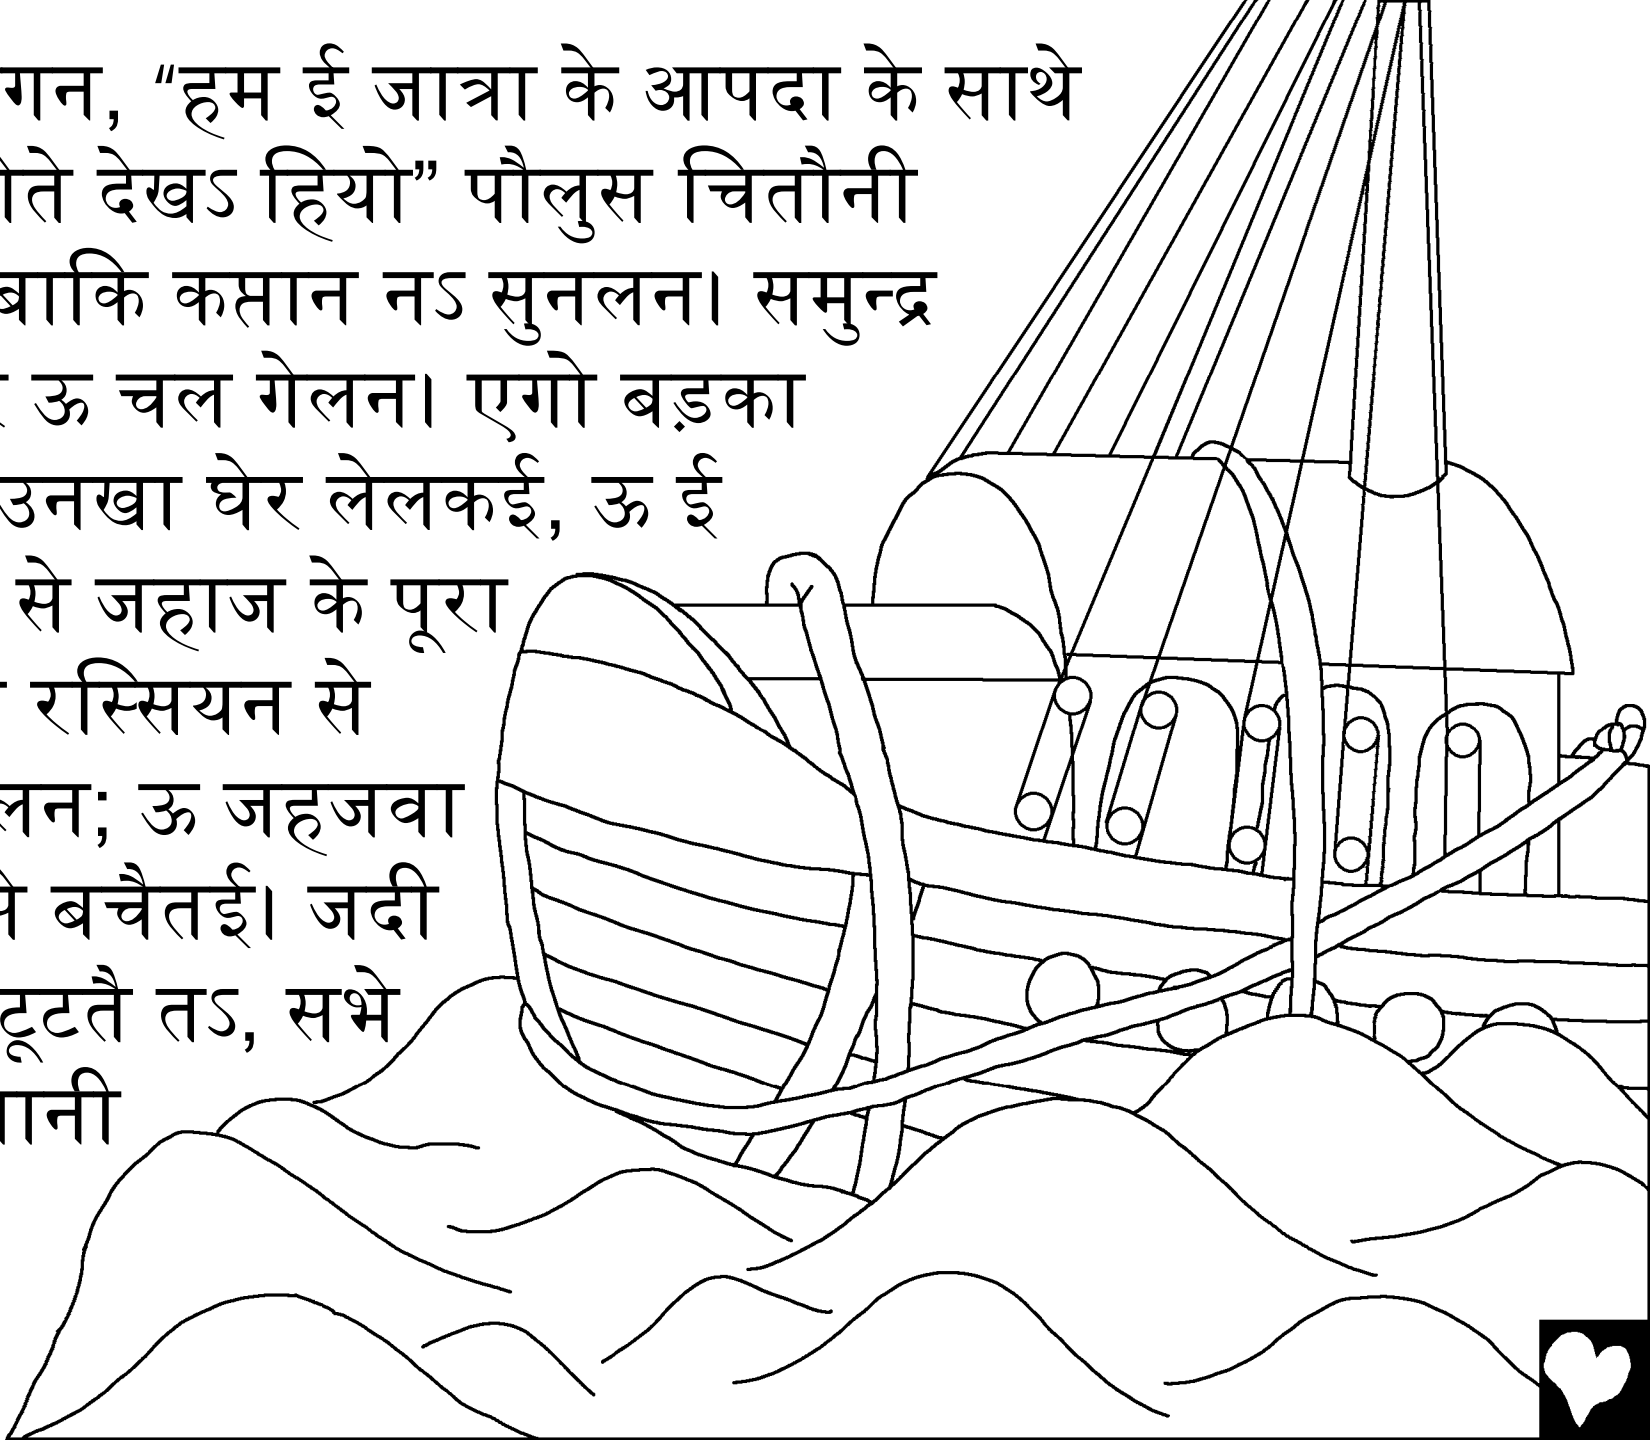 गन, “हम ई जात्रा के आपदा के साथे
देखऽ हियो” पौलुस चितौनी
बाकि कप्तान नऽ सुनलन। समुन्द्र
ऊ चल गेलन। एगो बड़का
उनखा घेर लेलकई, ऊ ई
से जहाज के पूरा
रस्सियन से
लन; ऊ जहजवा
बचैतई। जदी
टूटतै तऽ, सभे